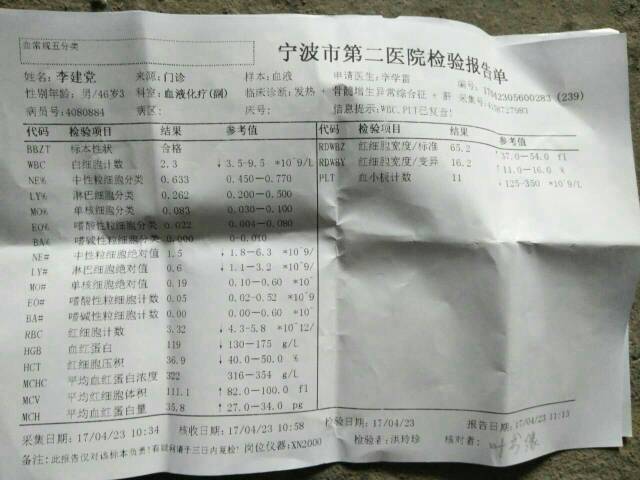 血常规五分类
宁波市第二医院检验报告单
姓名：李建党 来源：门诊 样本：血液 申请医生：李学富 编号：
性别年龄：男/46岁3 科室：血液化疗(副) 临床诊断：发热 + 骨髓增生异常综合征 + 肝 采集号：
(239)
病员号：4080884 病区： 床号： 信息提示：WBC,PLT已复查！
代码 检验项目 结果 参考值 代码 检验项目 结果 参考值
BBZT 标本性状 合格 RDWBZ 红细胞宽度/标准 65.2 ↑37.0-54.0 fl
WBC 白细胞计数 2.3 ↓3.5-9.5 *10^9/ RDWBY 红细胞宽度/变异 16.2 ↑11.0-16.0 %
NE% 中性粒细胞分类 0.633 0.450-0.770 PLT 血小板计数 11 ↓125-350 *10^9/L
LY% 淋巴细胞分类 0.262 0.200-0.500
MO% 单核细胞分类 0.083 0.030-0.100
EO% 嗜酸性粒细胞分类 0.022 0.004-0.080
BA% 嗜碱性粒细胞分类 0.000 0-0.010
NE# 中性粒细胞绝对值 1.5 ↓1.8-6.3 *10^9/
LY# 淋巴细胞绝对值 0.6 ↓1.1-3.2 *10^9/
MO# 单核细胞绝对值 0.19 0.10-0.60 *10^
EO# 嗜酸性粒细胞计数 0.05 0.02-0.52 *10^9
BA# 嗜碱性粒细胞计数 0.00 0.00-0.60 *10^
RBC 红细胞计数 3.32 ↓4.3-5.8 *10^12/
HGB 血红蛋白 119 ↓130-175 g/L
HCT 红细胞压积 36.9 ↓40.0-50.0 %
MCHC 平均血红蛋白浓度 322 316-354 g/L
MCV 平均红细胞体积 111.1 ↑82.0-100.0 fl
MCH 平均血红蛋白量 35.8 ↑27.0-34.0 pg
采集日期：17/04/23 10:34 核收日期：17/04/23 10:58 检验日期：17/04/23 报告日期：17/04/23 11:15
备注：此报告仅对该标本负责！有疑问请于三日内复检！ 岗位仪器：XN2000 检验者：洪玲珍 核对者：